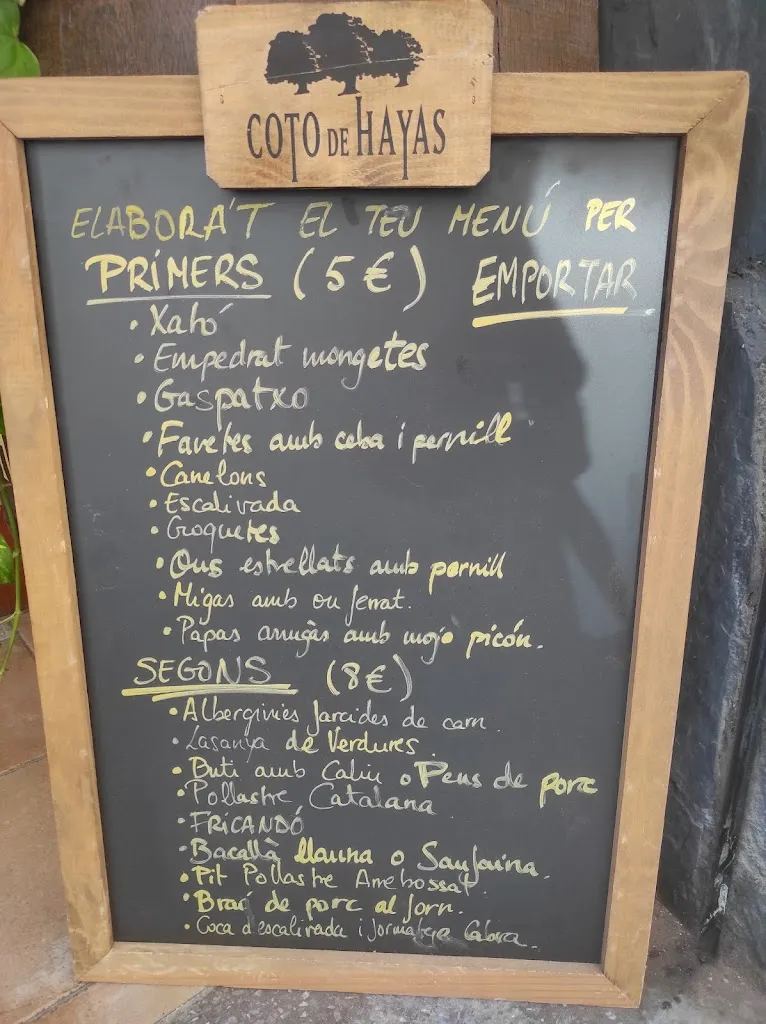 COTO DE HAYAS
ELABORA'T EL TEU MENÚ PER
PRIMERS (5€) EMPORTAR
• Xató
• Empedrat mongetes
• Gaspatxo
• Favetes amb ceba i pernill
• Canelons
• Escalivada
• Croquetes
• Ous estrellats amb pernill
• Migas amb ou ferrat.
• Papas arrugàs amb mojo picón.
SEGONS (8€)
• Albergínies farcides de carn.
• Lasanya de Verdures.
• Buti amb Caliu o Peus de porc
• Pollastre Catalana
• FRICANDÓ
• Bacallà llauna o Sanfaina.
• Pit Pollastre Arrebossat.
• Braó de porc al forn.
• Coca d'escalivada i formatge Cabra.